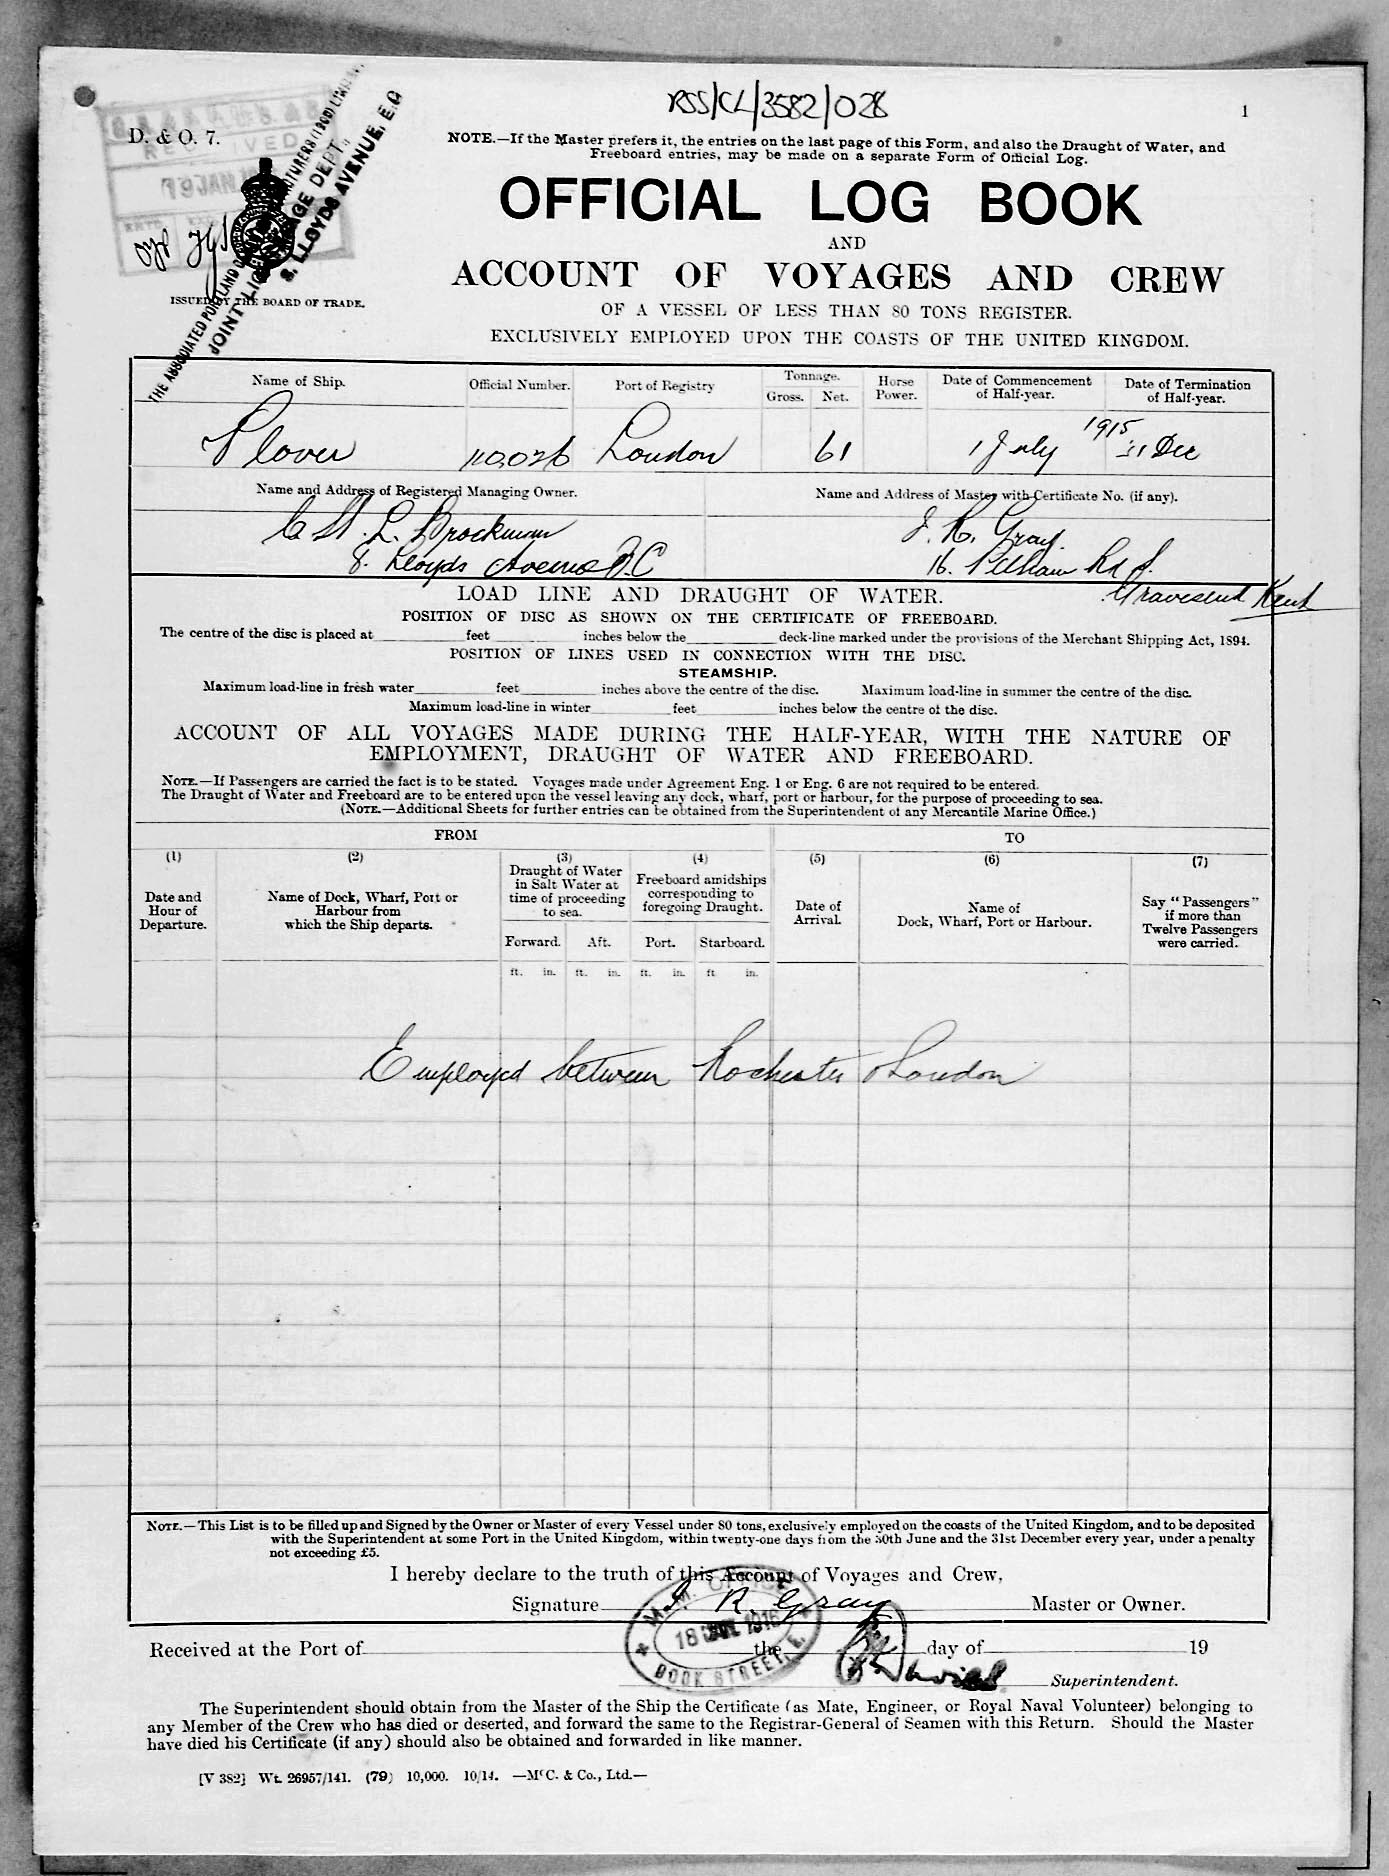 RSS/CL/3582/028
1
D. & O. 7.
RECEIVED
19 JAN
THE ASSOCIATED PORTLAND
JOINT
DEPT.,
8, LLOYDS AVENUE, E.C
ISSUED BY THE BOARD OF TRADE.
NOTE.—If the Master prefers it, the entries on the last page of this Form, and also the Draught of Water, and
Freeboard entries, may be made on a separate Form of Official Log.
OFFICIAL LOG BOOK
AND
ACCOUNT OF VOYAGES AND CREW
OF A VESSEL OF LESS THAN 80 TONS REGISTER.
EXCLUSIVELY EMPLOYED UPON THE COASTS OF THE UNITED KINGDOM.
Name of Ship. Official Number. Port of Registry Tonnage. Gross. Net. Horse Power. Date of Commencement of Half-year. Date of Termination of Half-year.
Plover 110,026 London 61 1 July 1915 31 Dec
Name and Address of Registered Managing Owner. Name and Address of Master with Certificate No. (if any).
C St. L. Brockman J. R. Gray
8. Lloyds Avenue E.C 16. Pelham Rd S.
Gravesend Kent
LOAD LINE AND DRAUGHT OF WATER.
POSITION OF DISC AS SHOWN ON THE CERTIFICATE OF FREEBOARD.
The centre of the disc is placed at feet inches below the deck-line marked under the provisions of the Merchant Shipping Act, 1894.
POSITION OF LINES USED IN CONNECTION WITH THE DISC.
STEAMSHIP.
Maximum load-line in fresh water feet inches above the centre of the disc. Maximum load-line in summer the centre of the disc.
Maximum load-line in winter feet inches below the centre of the disc.
ACCOUNT OF ALL VOYAGES MADE DURING THE HALF-YEAR, WITH THE NATURE OF
EMPLOYMENT, DRAUGHT OF WATER AND FREEBOARD.
NOTE.—If Passengers are carried the fact is to be stated. Voyages made under Agreement Eng. 1 or Eng. 6 are not required to be entered.
The Draught of Water and Freeboard are to be entered upon the vessel leaving any dock, wharf, port or harbour, for the purpose of proceeding to sea.
(NOTE.—Additional Sheets for further entries can be obtained from the Superintendent of any Mercantile Marine Office.)
FROM TO
(1) (2) (3) (4) (5) (6) (7)
Date and Hour of Departure.
Name of Dock, Wharf, Port or Harbour from which the Ship departs.
Draught of Water in Salt Water at time of proceeding to sea.
Freeboard amidships corresponding to foregoing Draught.
Date of Arrival.
Name of Dock, Wharf, Port or Harbour.
Say "Passengers" if more than Twelve Passengers were carried.
Forward. Aft. Port. Starboard.
ft. in. ft. in. ft. in. ft in.
Employed between Rochester & London
NOTE.—This List is to be filled up and Signed by the Owner or Master of every Vessel under 80 tons, exclusively employed on the coasts of the United Kingdom, and to be deposited
with the Superintendent at some Port in the United Kingdom, within twenty-one days from the 30th June and the 31st December every year, under a penalty
not exceeding £5.
I hereby declare to the truth of this Account of Voyages and Crew,
Signature J. R. Gray Master or Owner.
M.M. OFFICE
18 JAN. 1916
DOCK STREET, E.
Received at the Port of the day of 19
Superintendent.
The Superintendent should obtain from the Master of the Ship the Certificate (as Mate, Engineer, or Royal Naval Volunteer) belonging to
any Member of the Crew who has died or deserted, and forward the same to the Registrar-General of Seamen with this Return. Should the Master
have died his Certificate (if any) should also be obtained and forwarded in like manner.
[V 382] Wt. 26957/141. (79) 10,000. 10/14. —McC. & Co., Ltd.—